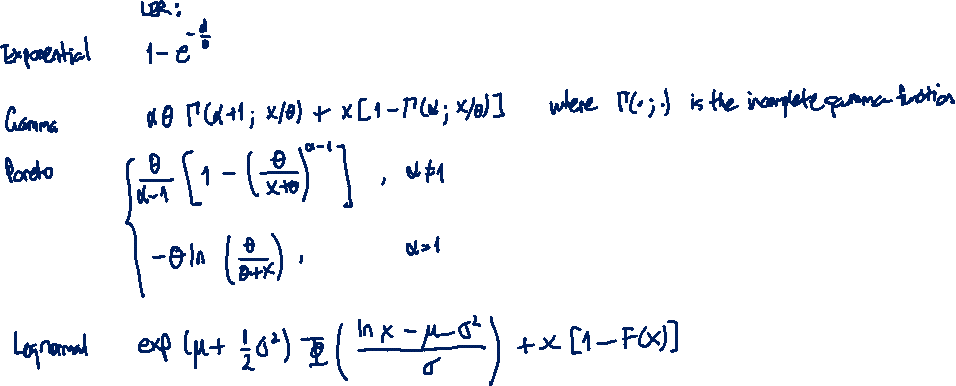 LER:
Exponential 1 - e^{-d/θ}
Gamma αθ Γ(α+1; x/θ) + x[1 - Γ(α; x/θ)] where Γ(·;·) is the incomplete gamma function
Pareto { θ/(α-1) [1 - (θ/(x+θ))^{α-1}], α≠1
-θ ln (θ/(θ+x)), α=1
Lognormal exp(μ + 1/2 σ²) Φ((ln x - μ - σ²)/σ) + x[1 - F(x)]